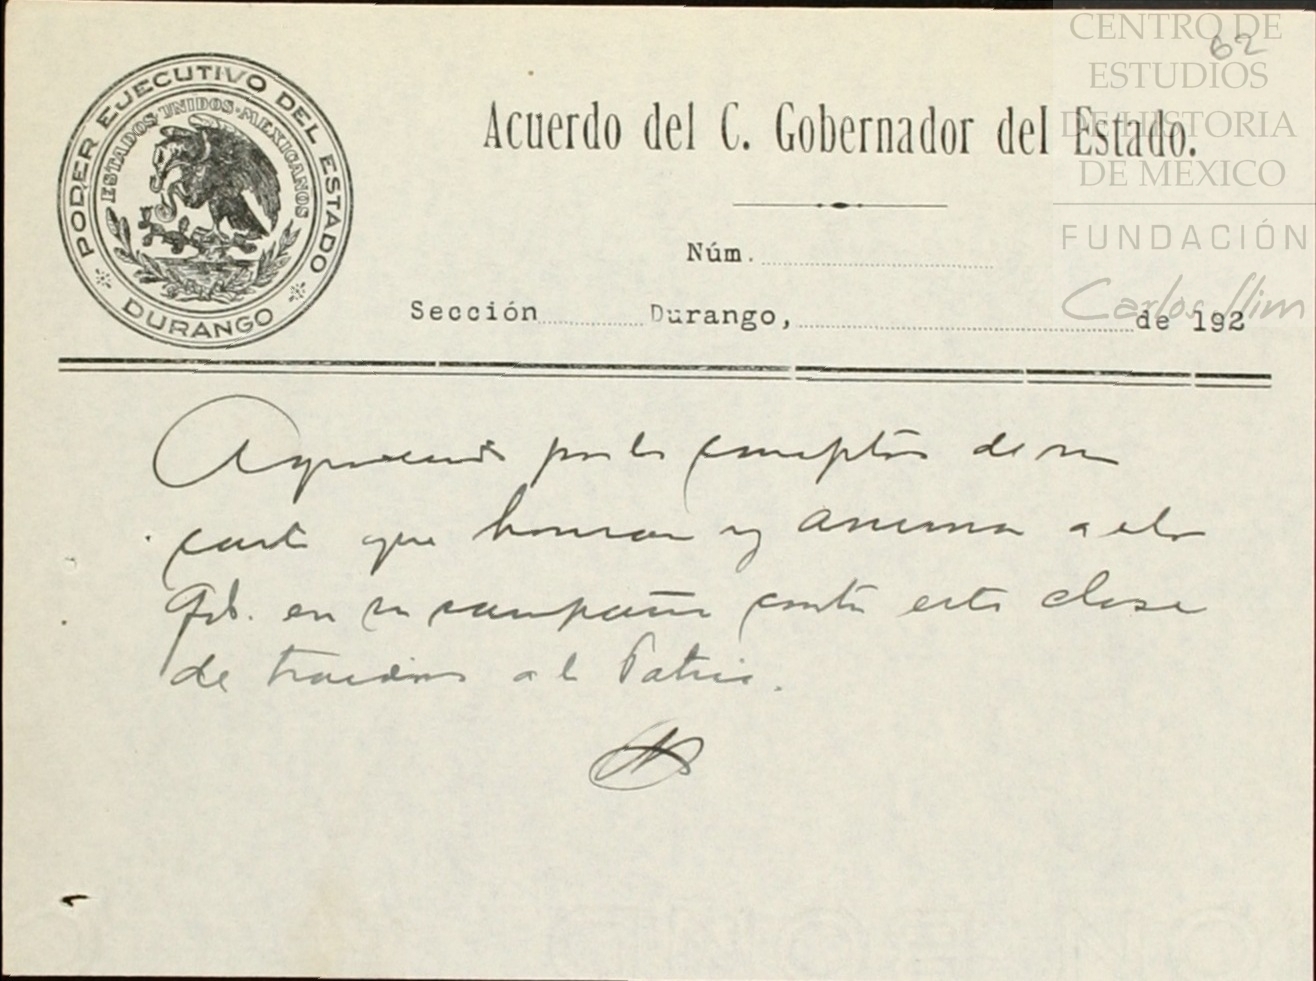 CENTRO DE
ESTUDIOS
DE HISTORIA
DE MEXICO
FUNDACIÓN
Carlos Slim
62
PODER EJECUTIVO DEL ESTADO
ESTADOS UNIDOS MEXICANOS
DURANGO
Acuerdo del C. Gobernador del Estado.
Núm.
Sección Durango, de 192
por los conceptos de su
carta que honran y animan a este
Gob. en su campaña contra esta clase
de traidores a la Patria.